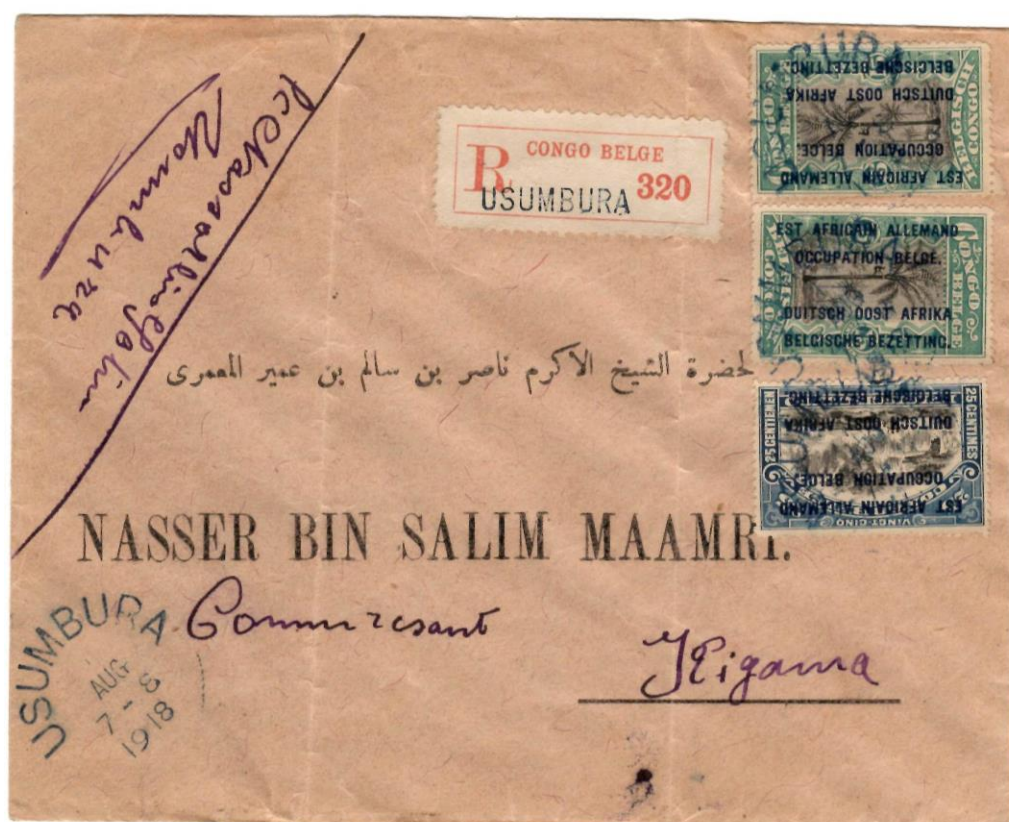 R CONGO BELGE
USUMBURA 320
EST AFRICAIN ALLEMAND
OCCUPATION BELGE.
DUITSCH OOST AFRIKA
BELGISCHE BEZETTING.
CONGO BELGE
BELGISCH CONGO
EST AFRICAIN ALLEMAND
OCCUPATION BELGE.
DUITSCH OOST AFRIKA
BELGISCHE BEZETTING.
CONGO BELGE
EST AFRICAIN ALLEMAND
OCCUPATION BELGE.
DUITSCH OOST AFRIKA
BELGISCHE BEZETTING.
25 CENTIEMEN
25 CENTIMES
VINGT-CINQ
لحضرة الشيخ الاكرم ناصر بن سالم بن عمير المعمرى
NASSER BIN SALIM MAAMRI.
Commerçant
Kigama
USUMBURA
AUG
7-8
1918